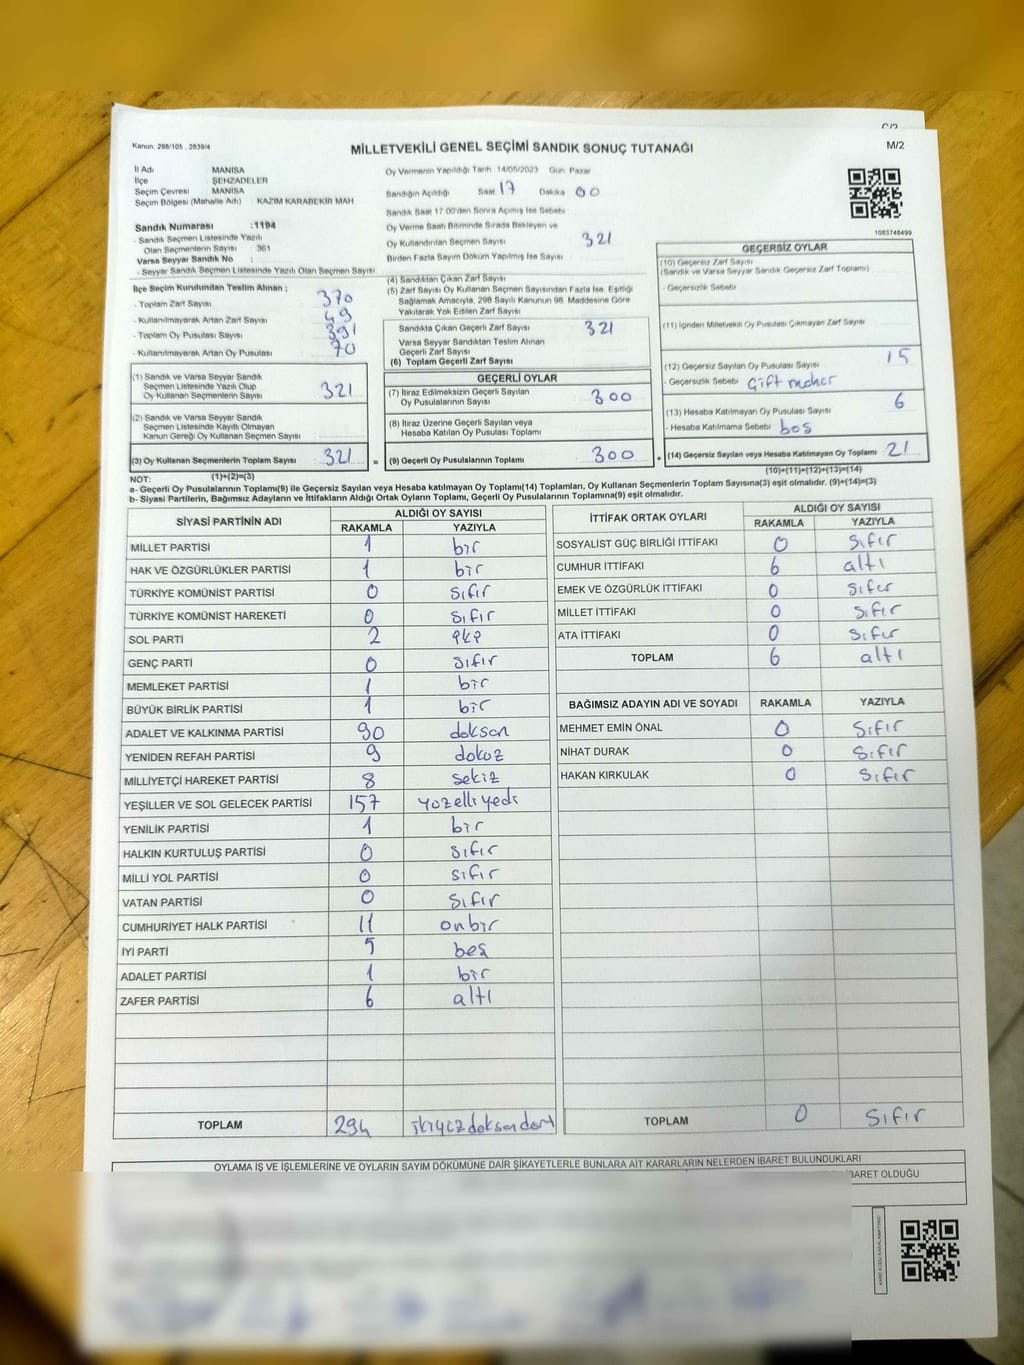 C/2
M/2
Kanun: 298/105 , 2839/4
MİLLETVEKİLİ GENEL SEÇİMİ SANDIK SONUÇ TUTANAĞI
İl Adı MANİSA
İlçe ŞEHZADELER
Seçim Çevresi MANİSA
Seçim Bölgesi (Mahalle Adı) KAZIM KARABEKİR MAH
Sandık Numarası :1194
- Sandık Seçmen Listesinde Yazılı
Olan Seçmenlerin Sayısı 361
Varsa Seyyar Sandık No :
- Seyyar Sandık Seçmen Listesinde Yazılı Olan Seçmen Sayısı
Oy Vermenin Yapıldığı Tarih 14/05/2023 Gün Pazar
Sandığın Açıldığı Saat 17 Dakika 00
Sandık Saat 17.00'den Sonra Açılmış İse Sebebi
Oy Verme Saati Bitiminde Sırada Bekleyen ve
Oy Kullandırılan Seçmen Sayısı 321
Birden Fazla Sayım Döküm Yapılmış İse Sayısı
1083748499
İlçe Seçim Kurulundan Teslim Alınan ;
- Toplam Zarf Sayısı 370
- Kullanılmayarak Artan Zarf Sayısı 49
- Toplam Oy Pusulası Sayısı 391
- Kullanılmayarak Artan Oy Pusulası 70
(1) Sandık ve Varsa Seyyar Sandık
Seçmen Listesinde Yazılı Olup
Oy Kullanan Seçmenlerin Sayısı 321
(2) Sandık ve Varsa Seyyar Sandık
Seçmen Listesinde Kayıtlı Olmayan
Kanun Gereği Oy Kullanan Seçmen Sayısı
(3) Oy Kullanan Seçmenlerin Toplam Sayısı 321 =
(1)+(2)=(3)
(4) Sandıktan Çıkan Zarf Sayısı
(5) Zarf Sayısı Oy Kullanan Seçmen Sayısından Fazla İse, Eşitliği
Sağlamak Amacıyla, 298 Sayılı Kanunun 98. Maddesine Göre
Yakılarak Yok Edilen Zarf Sayısı
Sandıkta Çıkan Geçerli Zarf Sayısı 321
Varsa Seyyar Sandıktan Teslim Alınan
Geçerli Zarf Sayısı
(6) Toplam Geçerli Zarf Sayısı
GEÇERLİ OYLAR
(7) İtiraz Edilmeksizin Geçerli Sayılan
Oy Pusulalarının Sayısı 300
(8) İtiraz Üzerine Geçerli Sayılan veya
Hesaba Katılan Oy Pusulası Toplamı
(9) Geçerli Oy Pusulalarının Toplamı 300 +
GEÇERSİZ OYLAR
(10) Geçersiz Zarf Sayısı
(Sandık ve Varsa Seyyar Sandık Geçersiz Zarf Toplamı)
- Geçersizlik Sebebi
(11) İçinden Milletvekili Oy Pusulası Çıkmayan Zarf Sayısı
(12) Geçersiz Sayılan Oy Pusulası Sayısı 15
- Geçersizlik Sebebi Çift mühür
(13) Hesaba Katılmayan Oy Pusulası Sayısı 6
- Hesaba Katılmama Sebebi boş
(14) Geçersiz Sayılan veya Hesaba Katılmayan Oy Toplamı 21
(10)+(11)+(12)+(13)=(14)
NOT:
a- Geçerli Oy Pusulalarının Toplamı(9) ile Geçersiz Sayılan veya Hesaba katılmayan Oy Toplamı(14) Toplamları, Oy Kullanan Seçmenlerin Toplam Sayısına(3) eşit olmalıdır. (9)+(14)=(3)
b- Siyasi Partilerin, Bağımsız Adayların ve İttifakların Aldığı Ortak Oyların Toplamı, Geçerli Oy Pusulalarının Toplamına(9) eşit olmalıdır.
SİYASİ PARTİNİN ADI ALDIĞI OY SAYISI
RAKAMLA YAZIYLA
MİLLET PARTİSİ 1 bir
HAK VE ÖZGÜRLÜKLER PARTİSİ 1 bir
TÜRKİYE KOMÜNİST PARTİSİ 0 sıfır
TÜRKİYE KOMÜNİST HAREKETİ 0 sıfır
SOL PARTİ 2 iki
GENÇ PARTİ 0 sıfır
MEMLEKET PARTİSİ 1 bir
BÜYÜK BİRLİK PARTİSİ 1 bir
ADALET VE KALKINMA PARTİSİ 90 doksan
YENİDEN REFAH PARTİSİ 9 dokuz
MİLLİYETÇİ HAREKET PARTİSİ 8 sekiz
YEŞİLLER VE SOL GELECEK PARTİSİ 157 yüzelliyedi
YENİLİK PARTİSİ 1 bir
HALKIN KURTULUŞ PARTİSİ 0 sıfır
MİLLİ YOL PARTİSİ 0 sıfır
VATAN PARTİSİ 0 sıfır
CUMHURİYET HALK PARTİSİ 11 onbir
İYİ PARTİ 5 beş
ADALET PARTİSİ 1 bir
ZAFER PARTİSİ 6 altı
TOPLAM 294 ikiyüzdoksandört
İTTİFAK ORTAK OYLARI ALDIĞI OY SAYISI
RAKAMLA YAZIYLA
SOSYALİST GÜÇ BİRLİĞİ İTTİFAKI 0 sıfır
CUMHUR İTTİFAKI 6 altı
EMEK VE ÖZGÜRLÜK İTTİFAKI 0 sıfır
MİLLET İTTİFAKI 0 sıfır
ATA İTTİFAKI 0 sıfır
TOPLAM 6 altı
BAĞIMSIZ ADAYIN ADI VE SOYADI RAKAMLA YAZIYLA
MEHMET EMİN ÖNAL 0 sıfır
NİHAT DURAK 0 sıfır
HAKAN KIRKULAK 0 sıfır
TOPLAM 0 sıfır
OYLAMA İŞ VE İŞLEMLERİNE VE OYLARIN SAYIM DÖKÜMÜNE DAİR ŞİKAYETLERLE BUNLARA AİT KARARLARIN NELERDEN İBARET BULUNDUKLARI
İBARET OLDUĞU